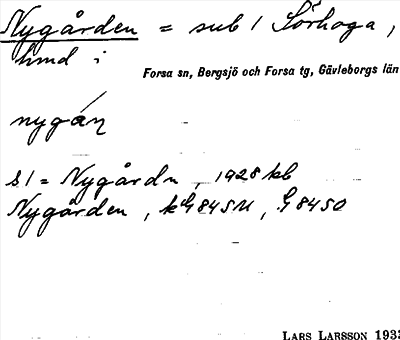 Nygården = sub / Sörhoga,
hmd i
Forsa sn, Bergsjö och Forsa tg, Gävleborgs län
nygán
s/ = Nygårdn, 1928 kb
Nygården, 845 , 8450
LARS LARSSON 1933